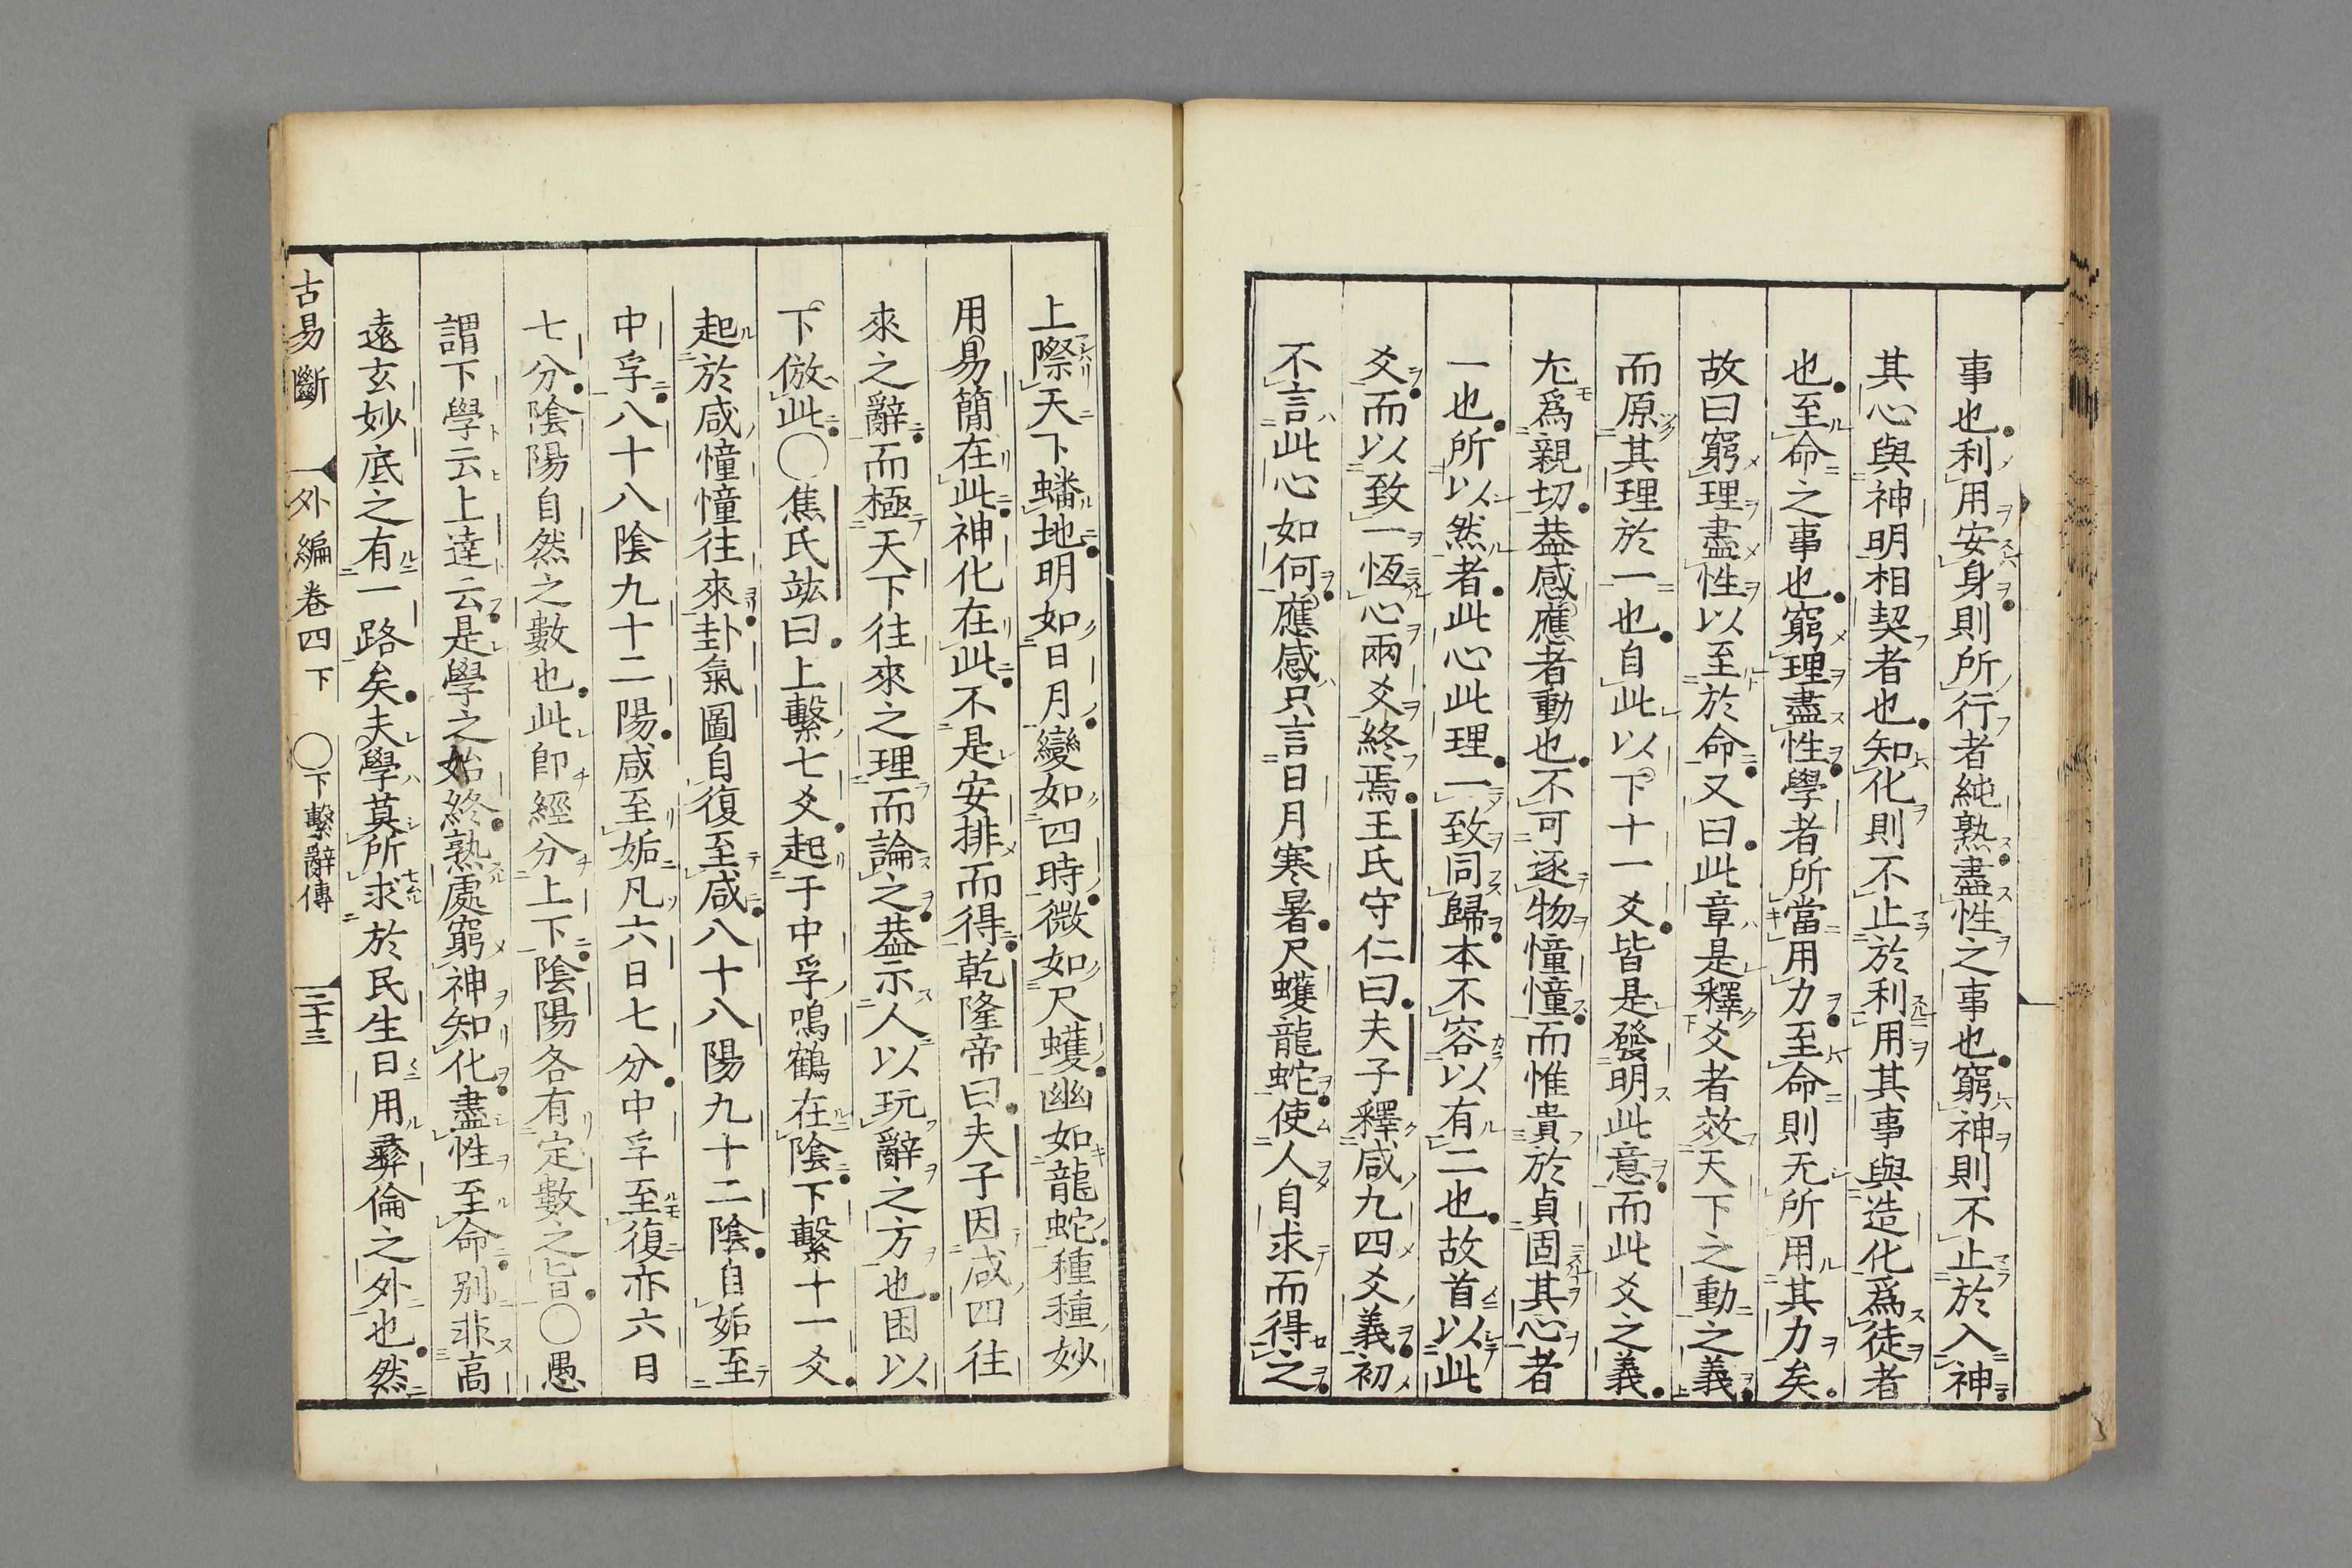 事也利用安身則所行者純熟盡性之事也窮神則不止於入神
其心與神明相契者也知化則不止於利用其事與造化爲徒者
也至命之事也窮理盡性學者所當用力至命則无所用其力矣
故曰窮理盡性以至於命又曰此章是釋爻者效天下之動之義
而原其理於一也自此以下十一爻皆是發明此意而此爻之義
尤爲親切葢感應者動也不可逐物憧憧而惟貴於貞固其心者
一也所以然者此心此理一致同歸本不容以有二也故首以此
爻而以致一恆心兩爻終焉王氏守仁曰夫子釋咸九四爻義初
不言此心如何應感只言日月寒暑尺蠖龍蛇使人自求而得之
上際天下蟠地明如日月變如四時微如尺蠖幽如龍蛇種種妙
用易簡在此神化在此不是安排而得乾隆帝曰夫子因咸四往
來之辭而極天下往來之理而論之葢示人以玩辭之方也困以
下倣此〇焦氏竑曰上繫七爻起于中孚鳴鶴在陰下繫十一爻
起於咸憧憧往來卦氣圖自復至咸八十八陽九十二陰自姤至
中孚八十八陰九十二陽咸至姤凡六日七分中孚至復亦六日
七分陰陽自然之數也此卽經分上下陰陽各有定數之旨〇愚
謂下學云上達云是學之始終熟處窮神知化盡性至命別非高
遠玄妙底之有一路矣夫學莫所求於民生日用彝倫之外也然
古易斷 外編卷四下 〇下繫辭傳 二十三